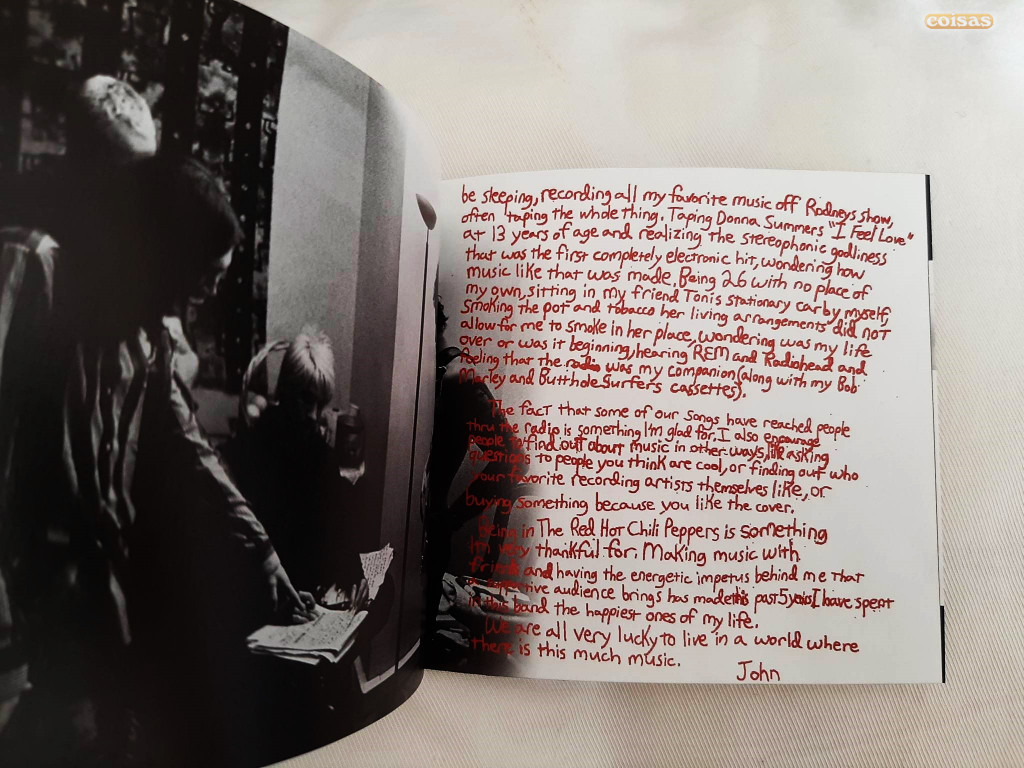 coisas
be sleeping, recording all my favorite music off Rodneys show,
often taping the whole thing. Taping Donna Summers "I Feel Love"
at 13 years of age and realizing the stereophonic godliness
that was the first completely electronic hit, wondering how
music like that was made. Being 26 with no place of
my own, sitting in my friend Tonis stationary car by myself,
smoking the pot and tobacco her living arrangements did not
allow for me to smoke in her place, wondering was my life
over or was it beginning, hearing REM and Radiohead and
feeling that the radio was my companion (along with my Bob
Marley and Butthole Surfers cassettes).
The fact that some of our songs have reached people
thru the radio is something I'm glad for. I also encourage
people to find out about music in other ways, like asking
questions to people you think are cool, or finding out who
your favorite recording artists themselves like, or
buying something because you like the cover.
Being in The Red Hot Chili Peppers is something
I'm very thankful for. Making music with
friends and having the energetic impetus behind me that
a supportive audience brings has made this past 5 years I have spent
in this band the happiest ones of my life.
We are all very lucky to live in a world where
there is this much music.
John